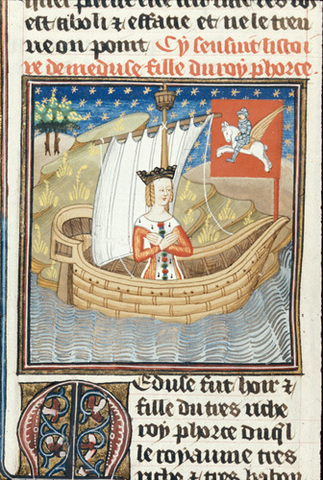 est aboli & efface et ne le treu
ue on point Cy sensuit listoi
re de meduse fille du roy phorce.
Meduse fut hoir &
fille du tres riche
roy phorce duql
le royaume tres
riche & tres habon